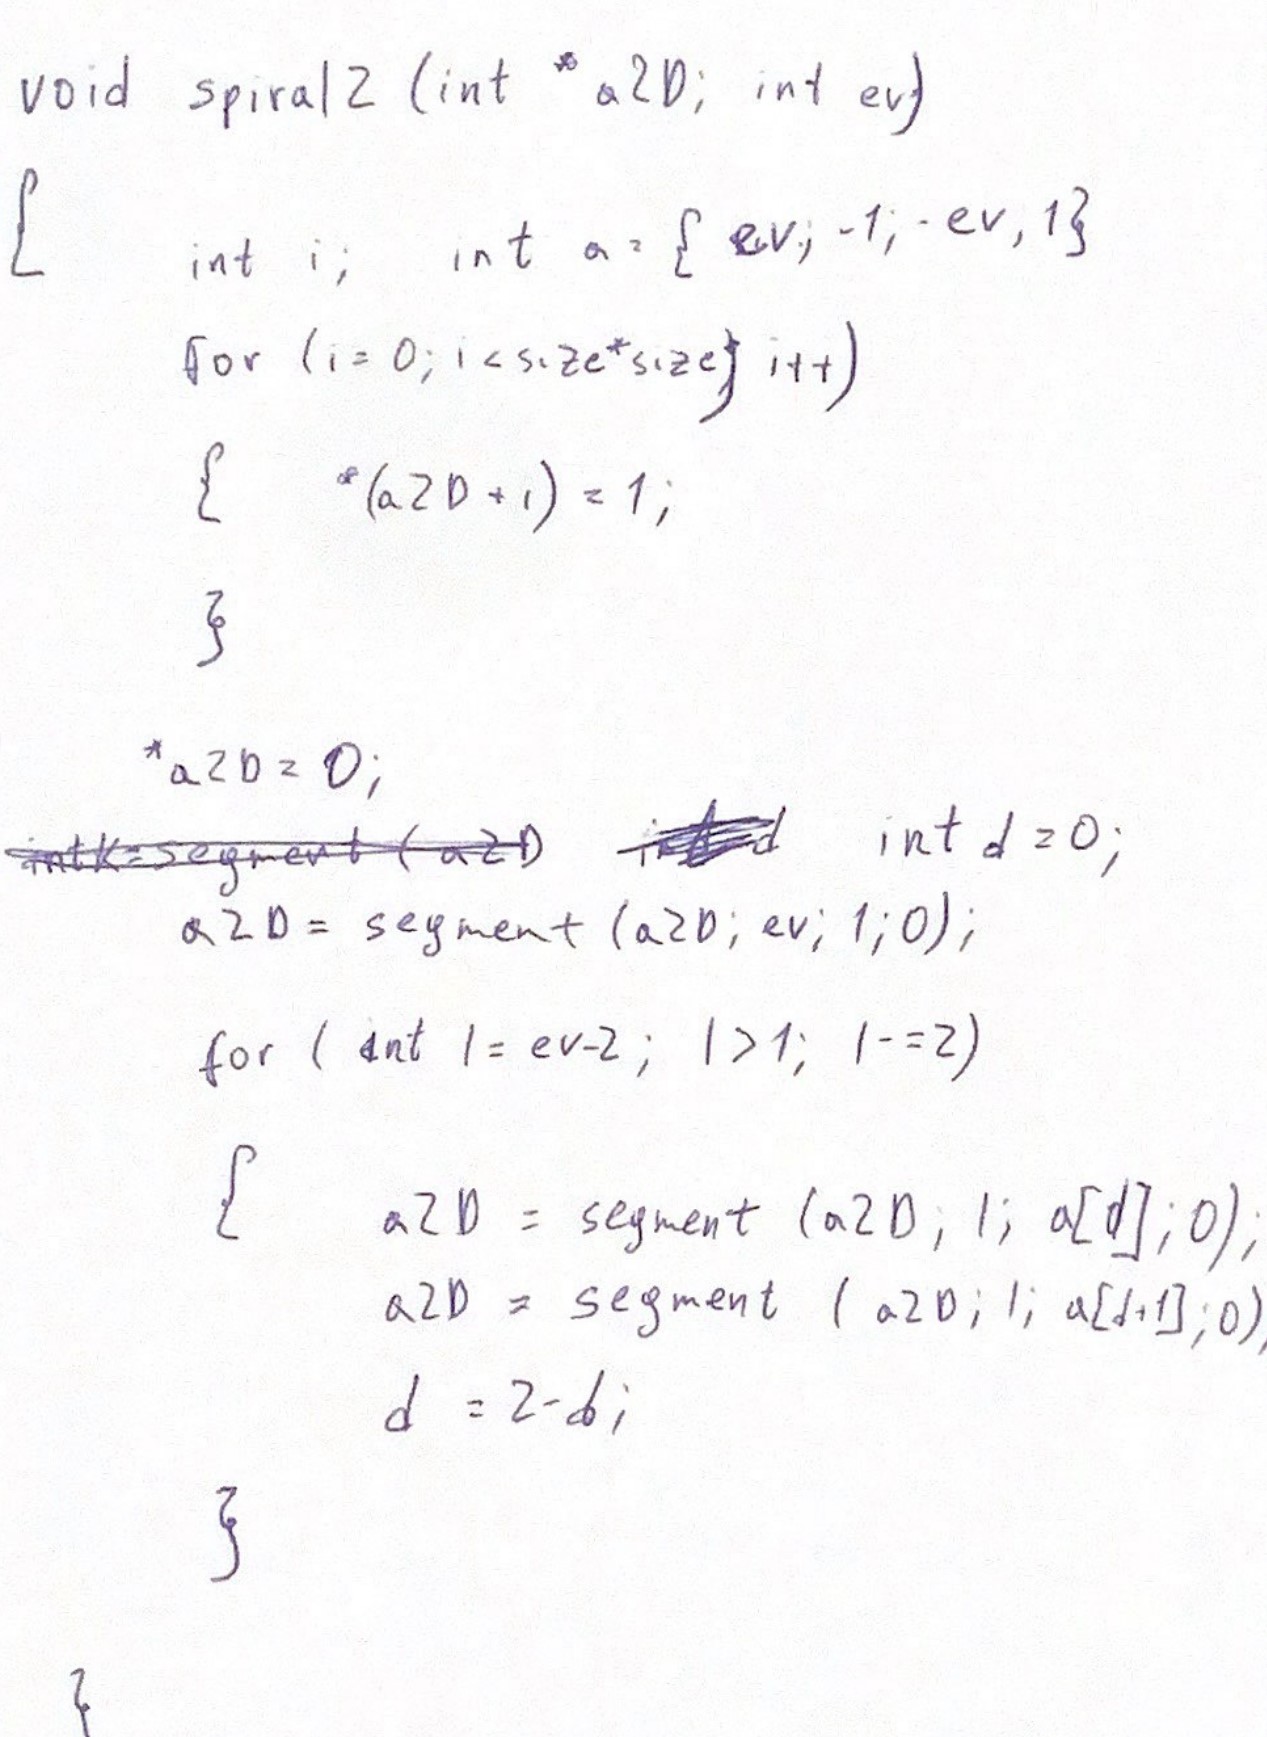 void spiral2 (int *a2D; int ev)
{
int i; int a = { ev; -1; -ev, 1}
for (i = 0; i < size*size; i++)
{ *(a2D + i) = 1;
}
*a2D = 0;
intK=segment (a2D int d int d = 0;
a2D = segment (a2D; ev; 1; 0);
for ( int l = ev-2; l > 1; l -= 2)
{ a2D = segment (a2D; l; a[d]; 0);
a2D = segment ( a2D; l; a[d+1]; 0);
d = 2-d;
}
}